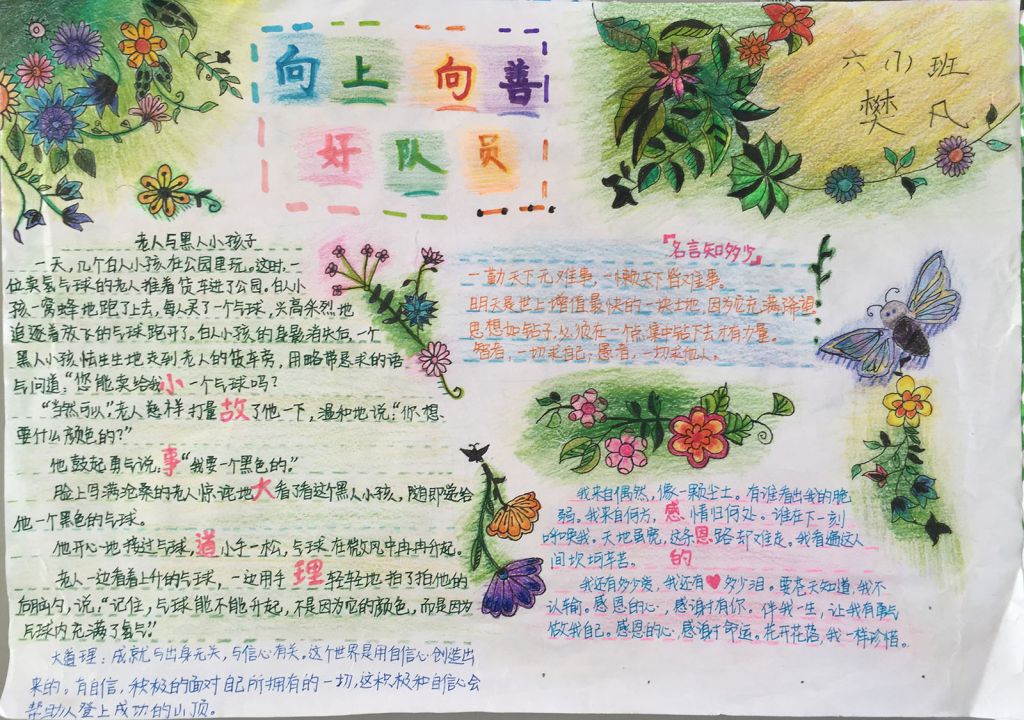 向上向善
好队员
六(1)班
樊凡
老人与黑人小孩子
一天,几个白人小孩在公园里玩。这时,一
位卖氢气球的老人推着货车进了公园。白人小
孩一窝蜂地跑了上去,每人买了一个气球,兴高采烈地
追逐着放飞的气球跑开了。白人小孩的身影消失后,一个
黑人小孩怯生生地走到老人的货车旁,用略带恳求的语
气问道:“您能卖给我一个气球吗?
“当然可以”,老人慈祥打量了他一下,温和地说:“你想
要什么颜色的?”
他鼓起勇气说:“我要一个黑色的。”
脸上写满沧桑的老人惊诧地看了看这个黑人小孩,随即递给
他一个黑色的气球。
他开心地接过气球,小手一松,气球在微风中冉冉升起。
老人一边看着上升的气球,一边用手轻轻地拍了拍他的
后脑勺,说:“记住,气球能不能升起,不是因为它的颜色,而是因为
气球内充满了氢气。”
小故事大道理
大道理:成就与出身无关,与信心有关。这个世界是用自信心创造出
来的。有自信,积极的面对自己所拥有的一切,这积极和自信心会
帮助人登上成功的山顶。
『名言知多少』
一勤天下无难事,一懒天下皆难事。
明天是世上增值最快的一块土地,因为它充满了希望
思想如钻子,必须在一个点集中钻下去才有力量。
智者,一切求自己;愚者,一切求他人。
我来自偶然,像一颗尘土。有谁看出我的脆
弱。我来自何方,情归何处。谁在下一刻
呼唤我。天地虽宽,这条路却难走。我看遍这人
间坎坷辛苦。
我还有多少爱,我还有多少泪。要苍天知道,我不
认输。感恩的心,感谢有你。伴我一生,让我有勇气
做我自己。感恩的心,感谢命运。花开花落,我一样珍惜。
感恩的